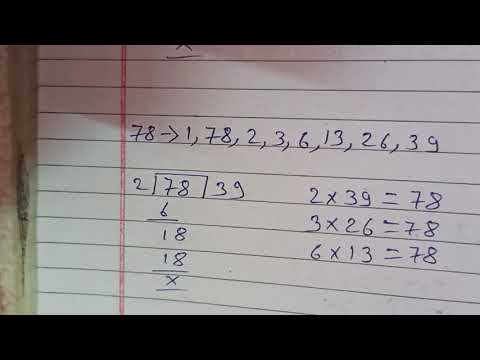 x
78→1,78,2,3,6,13,26,39
2 |78| 39
6
18
18
x
2×39=78
3×26=78
6×13=78